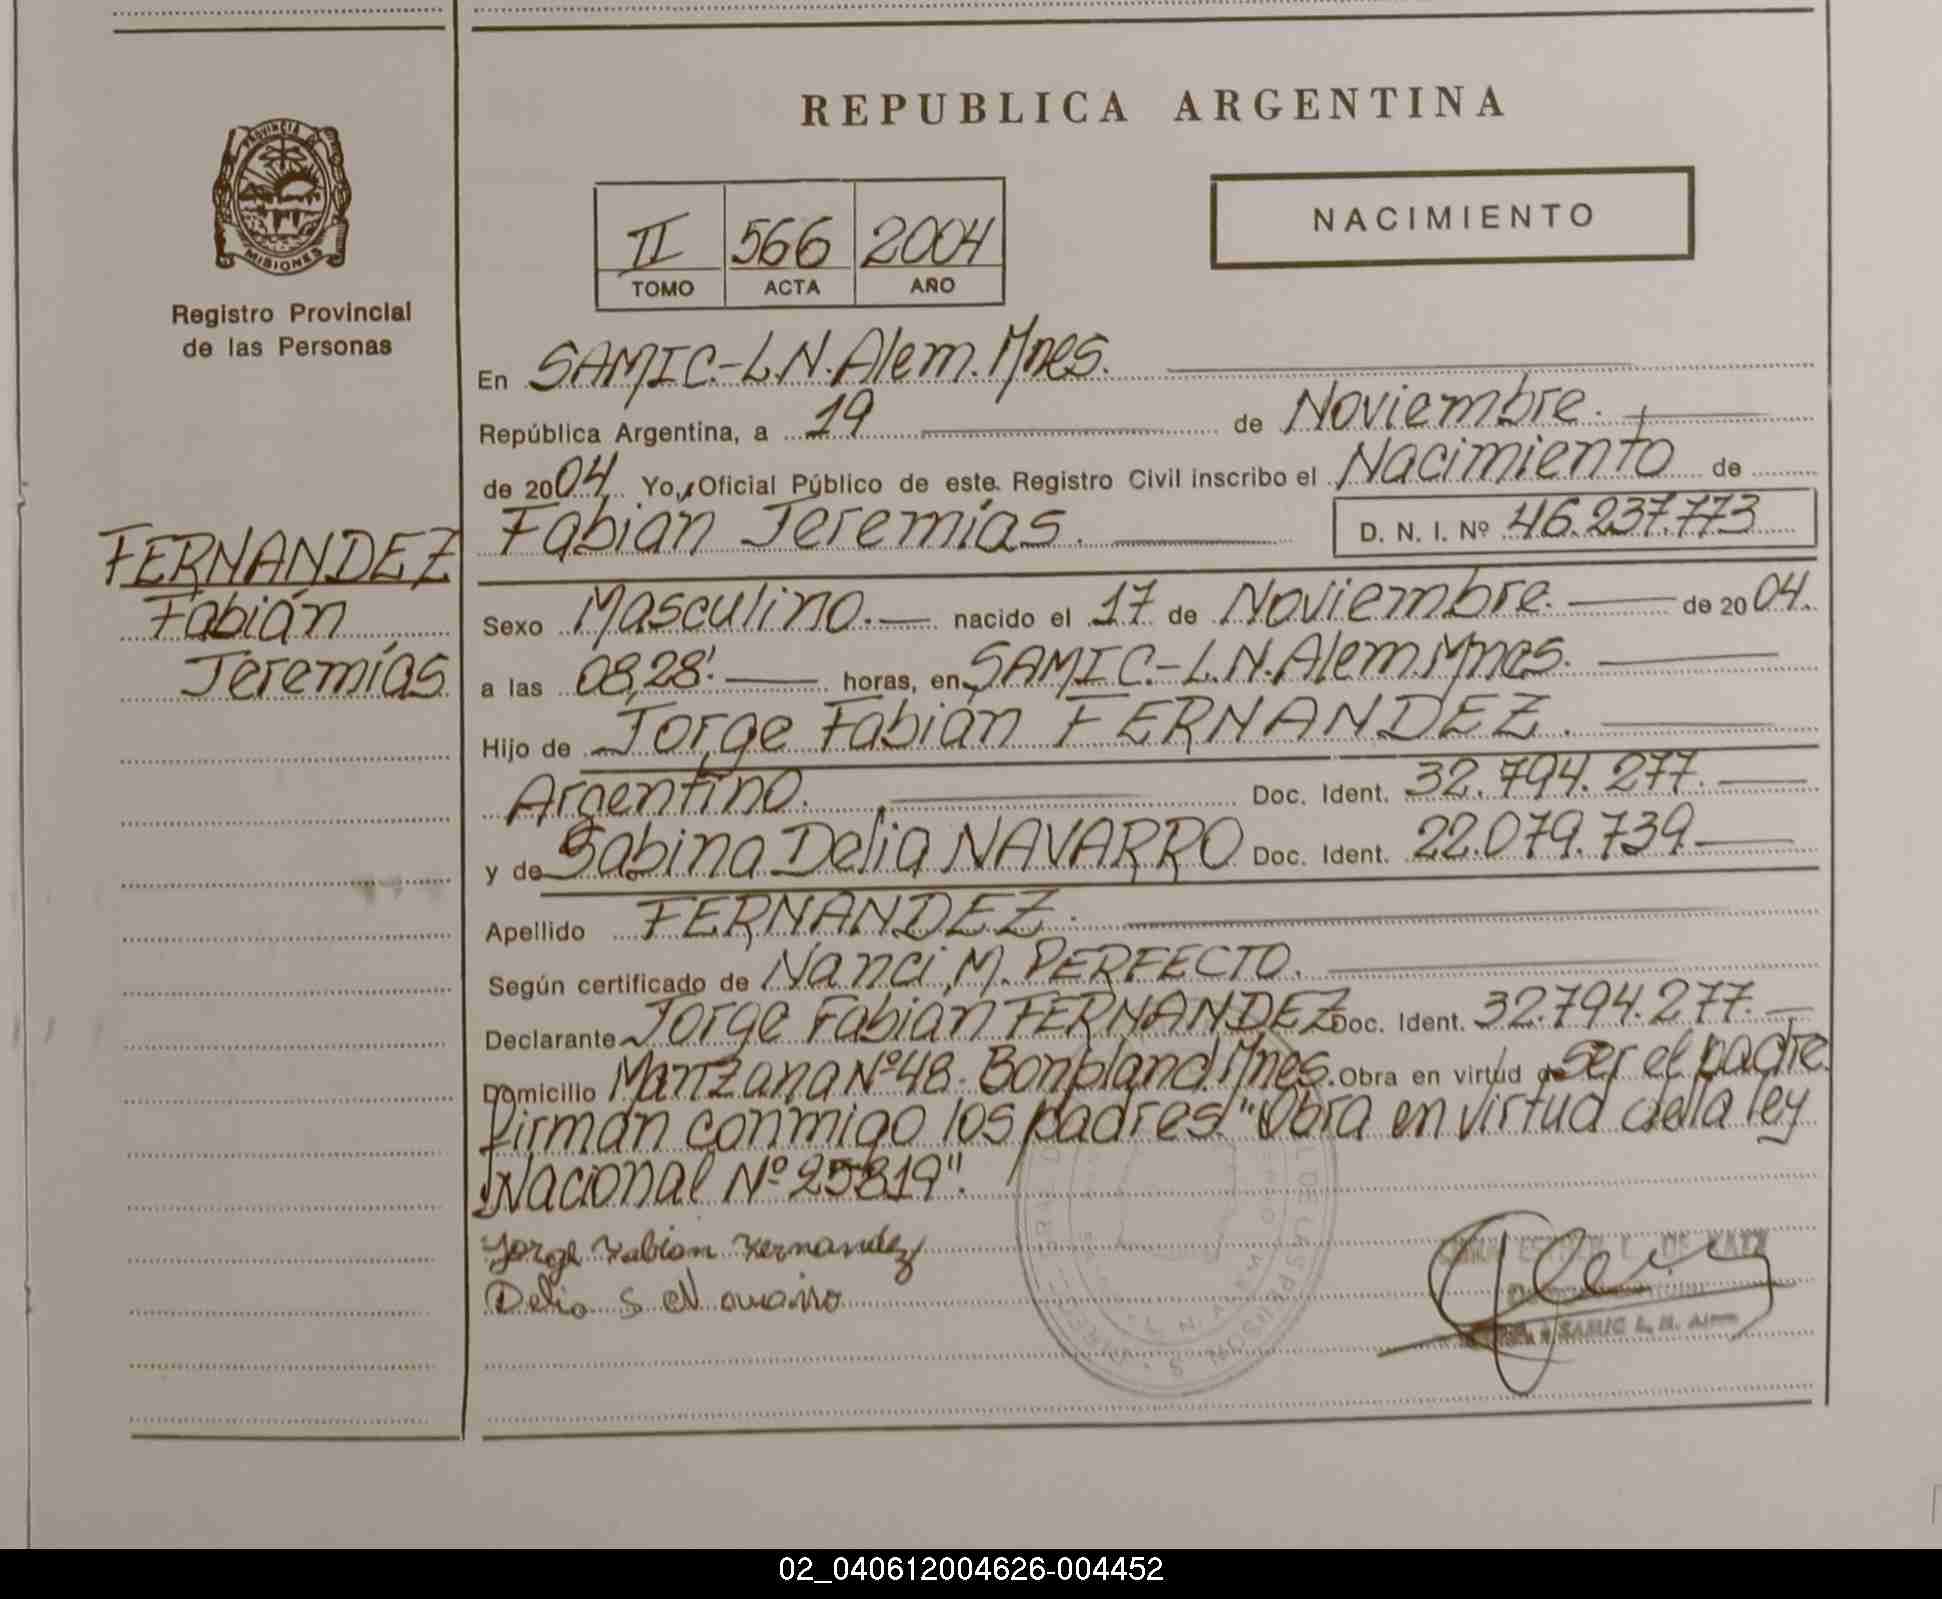 REPUBLICA ARGENTINA
PROVINCIA DE
MISIONES
Registro Provincial
de las Personas
II 566 2004
TOMO ACTA AÑO
NACIMIENTO
En SAMIC.-L.N.Alem.Mnes.
República Argentina, a 19 de Noviembre.
de 2004. Yo, Oficial Público de este Registro Civil inscribo el Nacimiento de
Fabián Jeremías. D. N. I. Nº 46.237.773
FERNANDEZ
Fabián
Jeremías
Sexo Masculino. nacido el 17 de Noviembre. de 2004.
a las 08,28'. horas, en SAMIC.-L.N.Alem Mnes.
Hijo de Jorge Fabián FERNANDEZ.
Argentino. Doc. Ident. 32.794.277.
y de Sabina Delia NAVARRO Doc. Ident. 22.079.739.
Apellido FERNANDEZ.
Según certificado de Nanci M. PERFECTO.
Declarante Jorge Fabián FERNANDEZ Doc. Ident. 32.794.277.
Domicilio Manzana Nº48. Bonpland.Mnes. Obra en virtud de ser el padre.
firman conmigo los padres "Obra en virtud de la ley
Nacional Nº 25819".
Jorge Fabian Fernandez
Delia S Navarro
SAMIC L. N. Alem
02_040612004626-004452